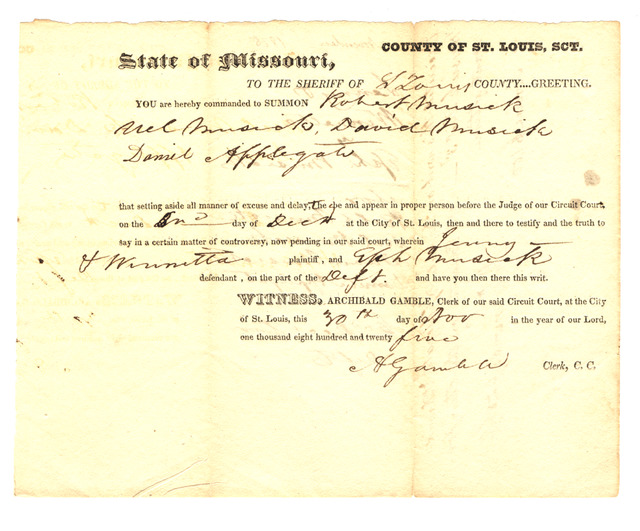 COUNTY OF ST. LOUIS, SCT.
State of Missouri,
TO THE SHERIFF OF St Louis COUNTY....GREETING.
YOU are hereby commanded to SUMMON Robert Musick
Uel Musick, David Musick
Daniel Applegate
that setting aside all manner of excuse and delay, they be and appear in proper person before the Judge of our Circuit Court,
on the 2nd day of Dect at the City of St. Louis, then and there to testify and the truth to
say in a certain matter of controversy, now pending in our said court, wherein Jenny
& Winnetta plaintiff, and Eph Musick
defendant, on the part of the Deft. and have you then there this writ.
WITNESS, ARCHIBALD GAMBLE, Clerk of our said Circuit Court, at the City
of St. Louis, this 30th day of Nov in the year of our Lord,
one thousand eight hundred and twenty five
A Gamble Clerk, C. C.